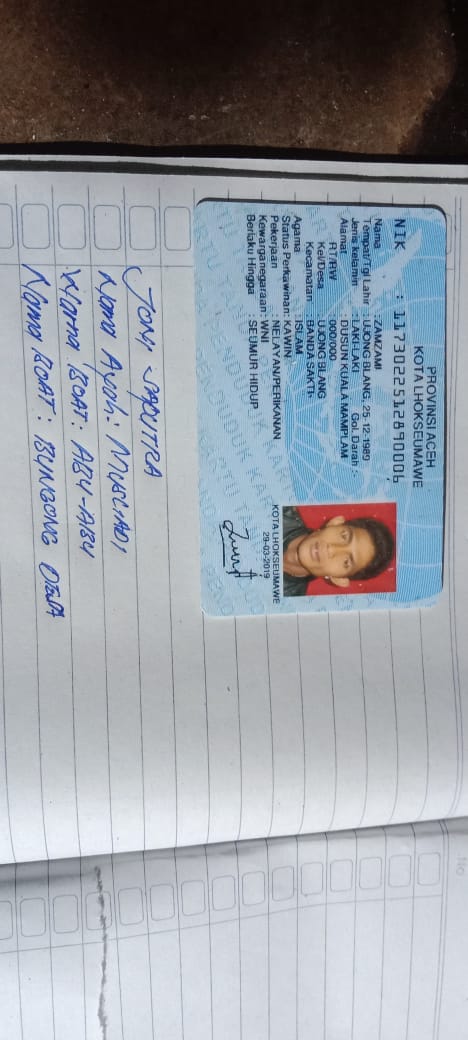 PROVINSI ACEH
KOTA LHOKSEUMAWE
NIK : 1173022512890006
Nama : ZAMZAMI
Tempat/Tgl Lahir : UJONG BLANG, 25-12-1989
Jenis kelamin : LAKI-LAKI Gol. Darah : -
Alamat : DUSUN KUALA MAMPLAM
RT/RW : 000/000
Kel/Desa : UJONG BLANG
Kecamatan : BANDA SAKTI
Agama : ISLAM
Status Perkawinan: KAWIN
Pekerjaan : NELAYAN/PERIKANAN
Kewarganegaraan: WNI
Berlaku Hingga : SEUMUR HIDUP
KOTA LHOKSEUMAWE
29-03-2019
JONI SAPUTRA
Nama Ayah: MURLIADI
Warna BOAT: ABU-ABU
Nama BOAT: BUNGONG
No